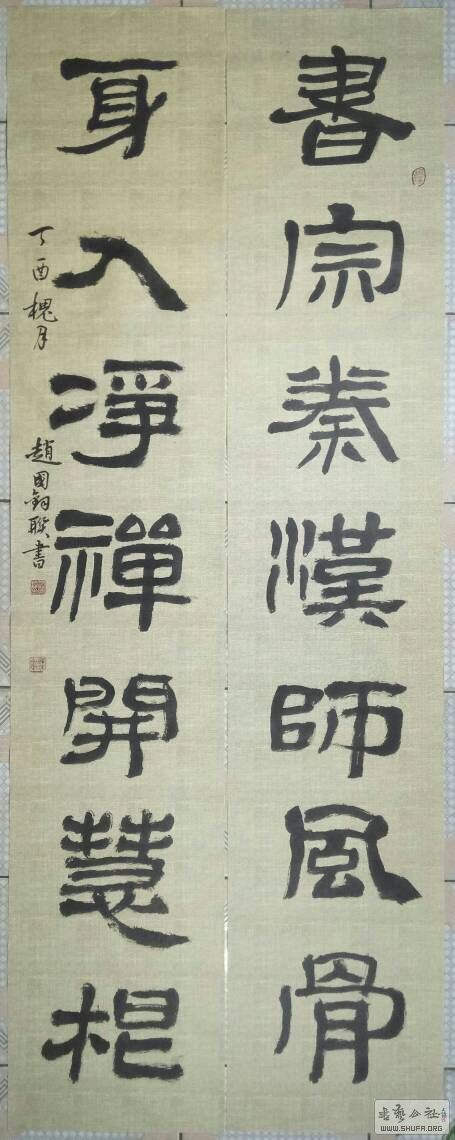 書宗秦漢師風骨
身入淨禪開慧根
丁酉槐月
趙國鈞聯書
WWW.SHUFA.ORG